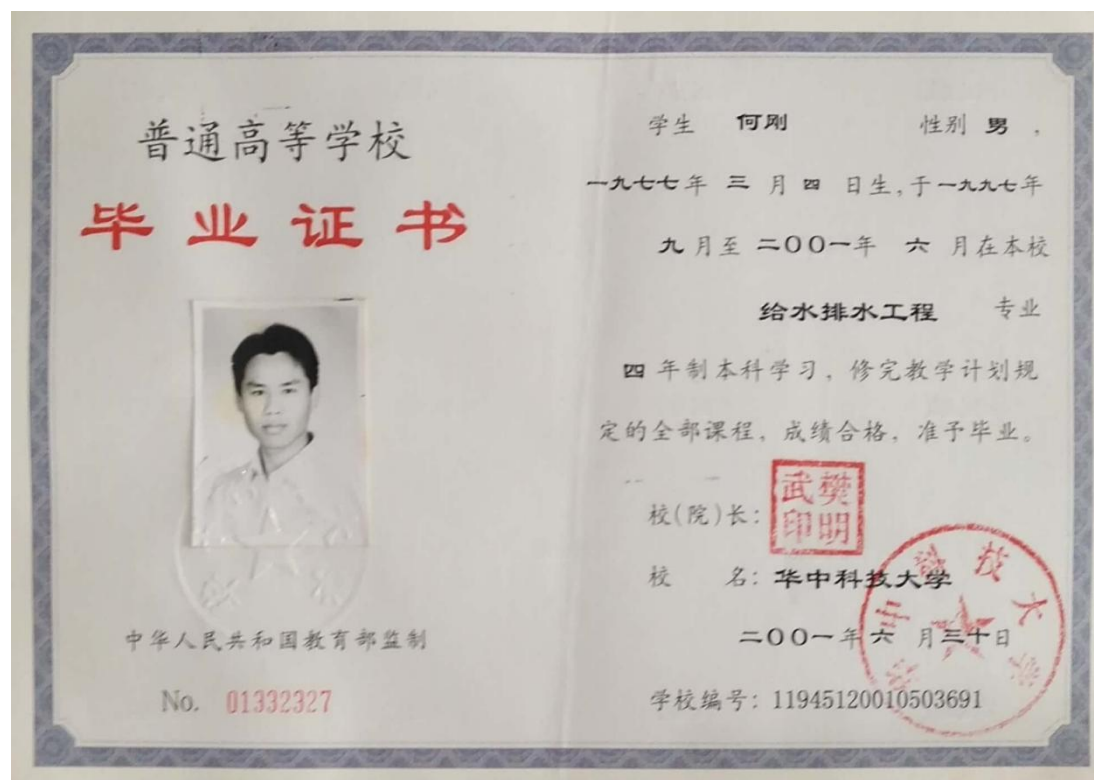 普通高等学校
毕业证书
中华人民共和国教育部监制
No. 01332327
学生 何刚 性别 男，
一九七七年 三 月 四 日生，于一九九七年
九 月至 二〇〇一年 六 月在本校
给水排水工程 专业
四 年制本科学习，修完教学计划规
定的全部课程，成绩合格，准予毕业。
校(院)长：
樊明武印
校 名：华中科技大学
二〇〇一年 六 月三十日
学校编号：11945120010503691